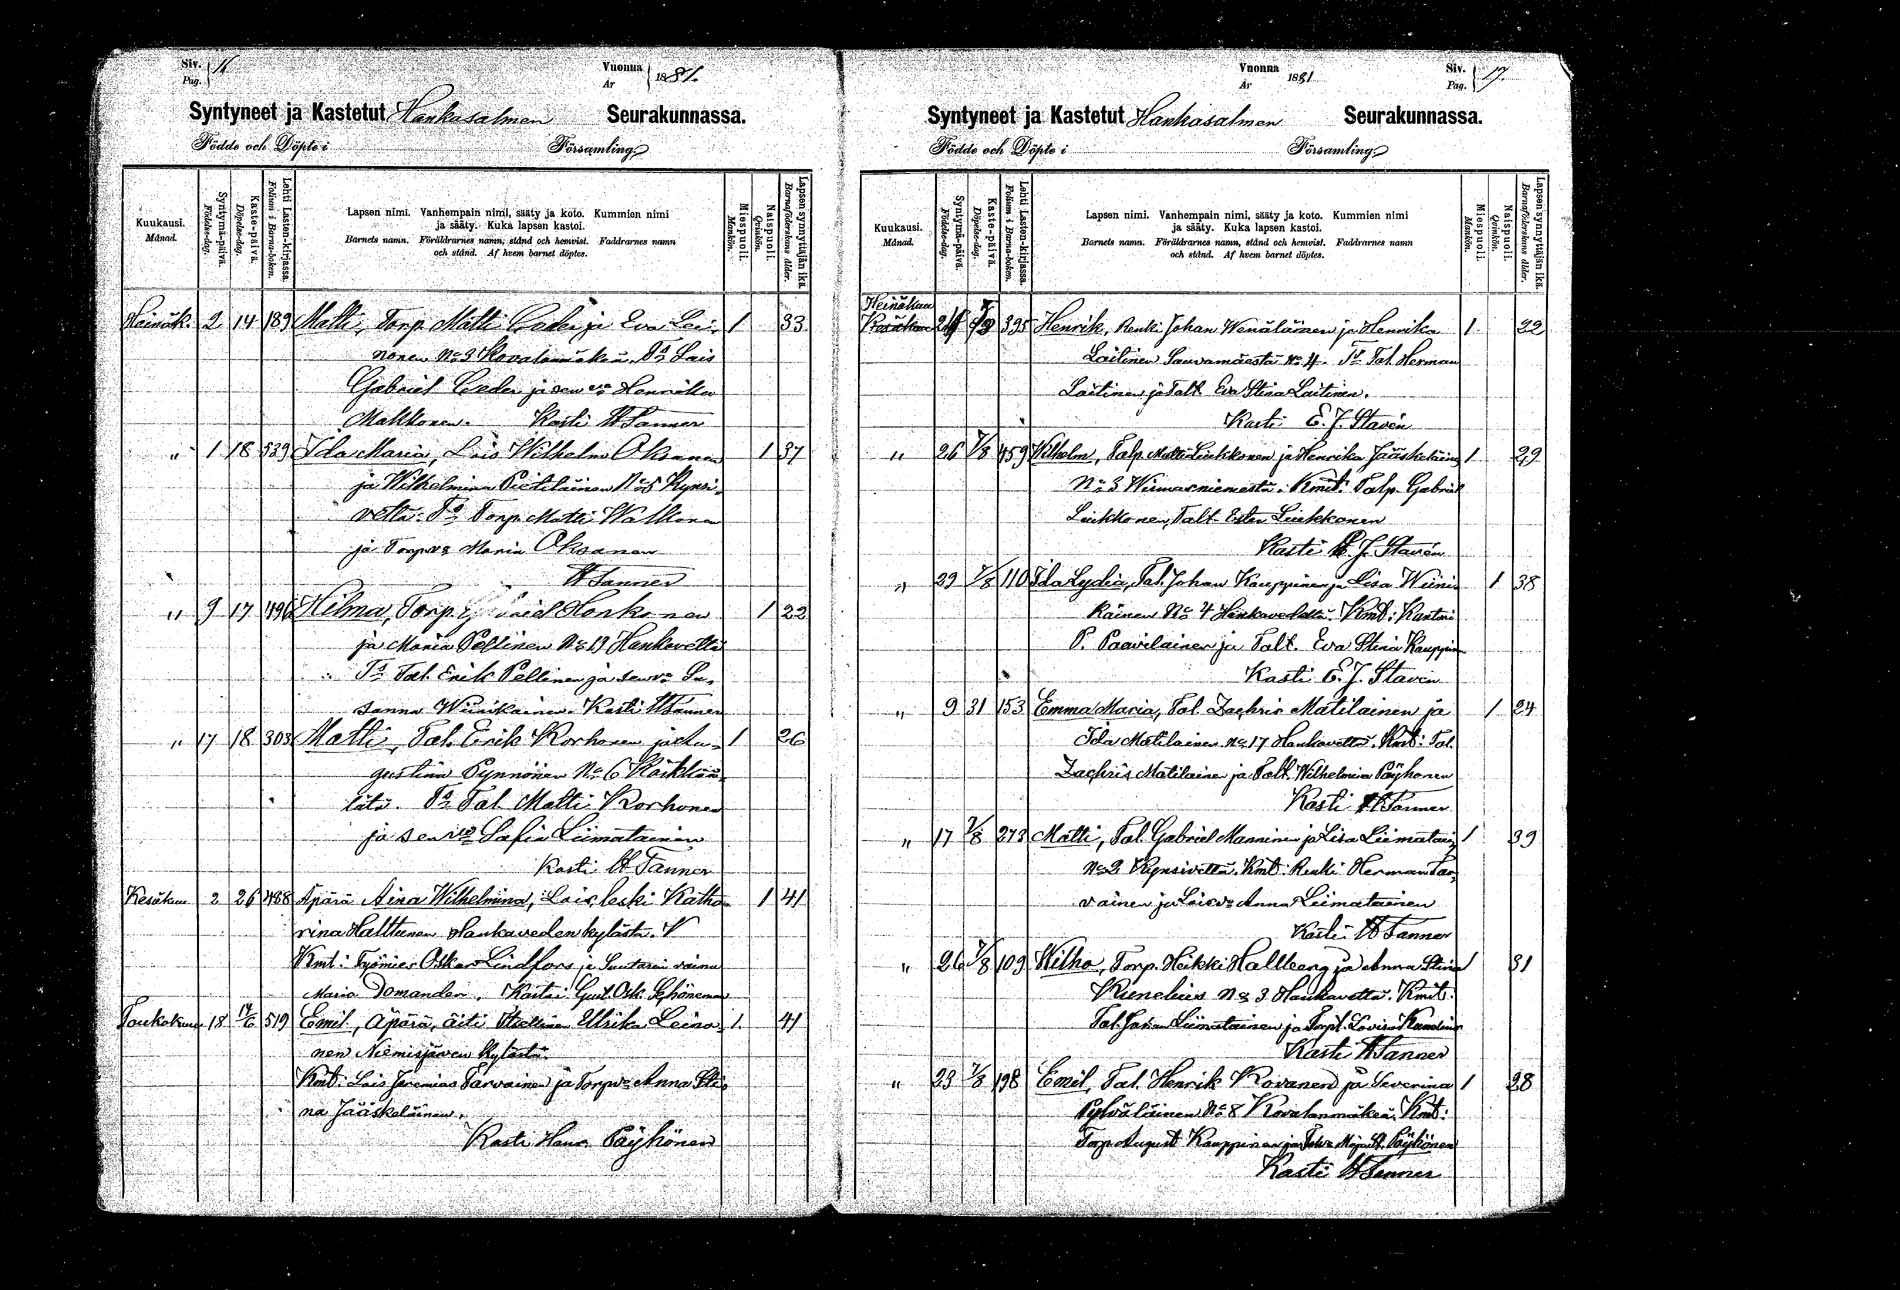 Siv. Pag. 16
Vuonna År 1881.
Syntyneet ja Kastetut Hankasalmen Seurakunnassa.
Födde och Döpte i Församling
Kuukausi. Månad.
Syntymä-päivä. Födelse-dag.
Kaste-päivä. Döpelse-dag.
Lehti Lasten-kirjassa. Folium i Barna-boken.
Lapsen nimi. Vanhempain nimi, sääty ja koto. Kummien nimi
ja sääty. Kuka lapsen kastoi.
Barnets namn. Föräldrarnes namn, stånd och hemvist. Faddrarnes namn
och stånd. Af hvem barnet döptes.
Miespuoli. Mankön.
Naispuoli. Qvinkön.
Lapsen synnyttäjän ikä. Barnaföderskans ålder.
Heinäk. 2 14 189 Matti, Torp. Matti Ceder ja Eva Lei- 1 33
nonen No 3 Kovalanmäkeä. Ts Lois
Gabriel Ceder ja sen va Henriika
Makkonen. Kasti Tanner
" 1 18 529 Ida Maria, Lois Wilhelm Oksanen 1 37
ja Wilhelmina Pietiläinen No 8 Kynsi-
veltä: Ts Torp. Matti Walkonen
ja Torp va Maria Oksanen
Tanner
" 9 17 496 Hilma, Torp. Honkonen 1 22
ja Maria Pellinen No 19 Hankavettä
Ts Tal. Erik Pellinen ja sen va Su-
sanna Wiinikainen. Kasti Tanner
" 17 18 303 Matti, Tal. Erik Korhonen ja Au- 1 26
gustina Pynnönen No 6
Ts Tal. Matti Korhonen
ja sen va Sofia Liimatainen
Kasti Tanner
Kesäkuu 2 26 488 Äpärä Aina Wilhelmina, Lois. leski Katha- 1 41
rina Halttunen Hankaveden kylästä.
Kmt: Työmies Oskar Lindfors ja Suutarin vaimo
Maria Domander. Kastoi Gust. Osk. Schöneman
Toukokuu 18 14/6 519 Emil, Äpärä, äiti Ulrika Leino- 1. 41
nen Niemisjärven kylästä.
Kmt: Lois Jeremias Tarvainen ja Torp va Anna Sti-
na Jääskeläinen.
Kasti Päyhönen
Vuonna År 1881
Siv. Pag. 17.
Syntyneet ja Kastetut Hankasalmen Seurakunnassa.
Födde och Döpte i Församling
Kuukausi. Månad.
Syntymä-päivä. Födelse-dag.
Kaste-päivä. Döpelse-dag.
Lehti Lasten-kirjassa. Folium i Barna-boken.
Lapsen nimi. Vanhempain nimi, sääty ja koto. Kummien nimi
ja sääty. Kuka lapsen kastoi.
Barnets namn. Föräldrarnes namn, stånd och hemvist. Faddrarnes namn
och stånd. Af hvem barnet döptes.
Miespuoli. Mankön.
Naispuoli. Qvinkön.
Lapsen synnyttäjän ikä. Barnaföderskans ålder.
Heinäkuu
395 Henrik, Renki Johan Wenäläinen ja Henrika 1 22
Laitinen Sauvamäestä No 4. Ts Tal. Herman
Laitinen ja Talt. Eva Stina Laitinen.
Kasti E. J. Stavén
" 26 7/8 459 Wilhelm, Talp. Matti Liukkonen ja Henrika Jääskeläinen 1 29
No 3 Kmt: Talp. Gabriel
Liukkonen, Talt. Ester Liukkonen
Kasti E. J. Stavén
" 29 7/8 110 Ida Lydia, Tal. Johan Kauppinen ja Lisa Wiini- 1 38
kainen No 4 Hankavedeltä. Kmt: Kantori
P. Paavilainen ja Talt. Eva Stina Kauppinen
Kasti E. J. Stavén
" 9 31 153 Emma Maria, Tal. Zachris Matilainen ja 1 24
Ida Matilainen No 17 Hankavettä. Kmt: Tal.
Zachris Matilainen ja Talt. Wilhelmina Päyhönen
Kasti Tanner
" 17 7/8 273 Matti, Tal. Gabriel Manninen ja Lisa Liimatainen 1 39
No 2 Kynsivettä. Kmt: Renki Herman Tar-
vainen ja Lois va Anna Liimatainen
Kasti Tanner
" 26 7/8 109 Wilho, Torp. Heikki Hallberg ja Anna Stina 1 31
Kunelius No 3 Hankavettä. Kmt:
Tal. Johan Liimatainen ja Torpt. Lovisa
Kasti Tanner
" 23 7/8 198 Emil, Tal. Henrik Rovanen ja Severina 1 28
Pylväläinen No 8 Kovalanmäkeä. Kmt:
Torp. August Kauppinen ja Päyhönen
Kasti Tanner